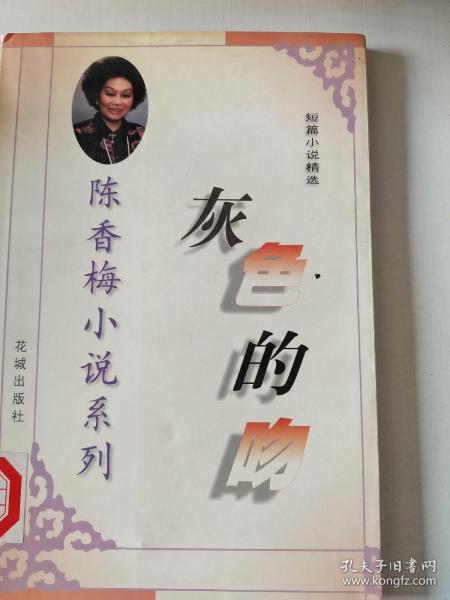 短篇小说精选
灰色的吻
陈香梅小说系列
花城出版社
孔夫子旧书网
www.kongfz.com